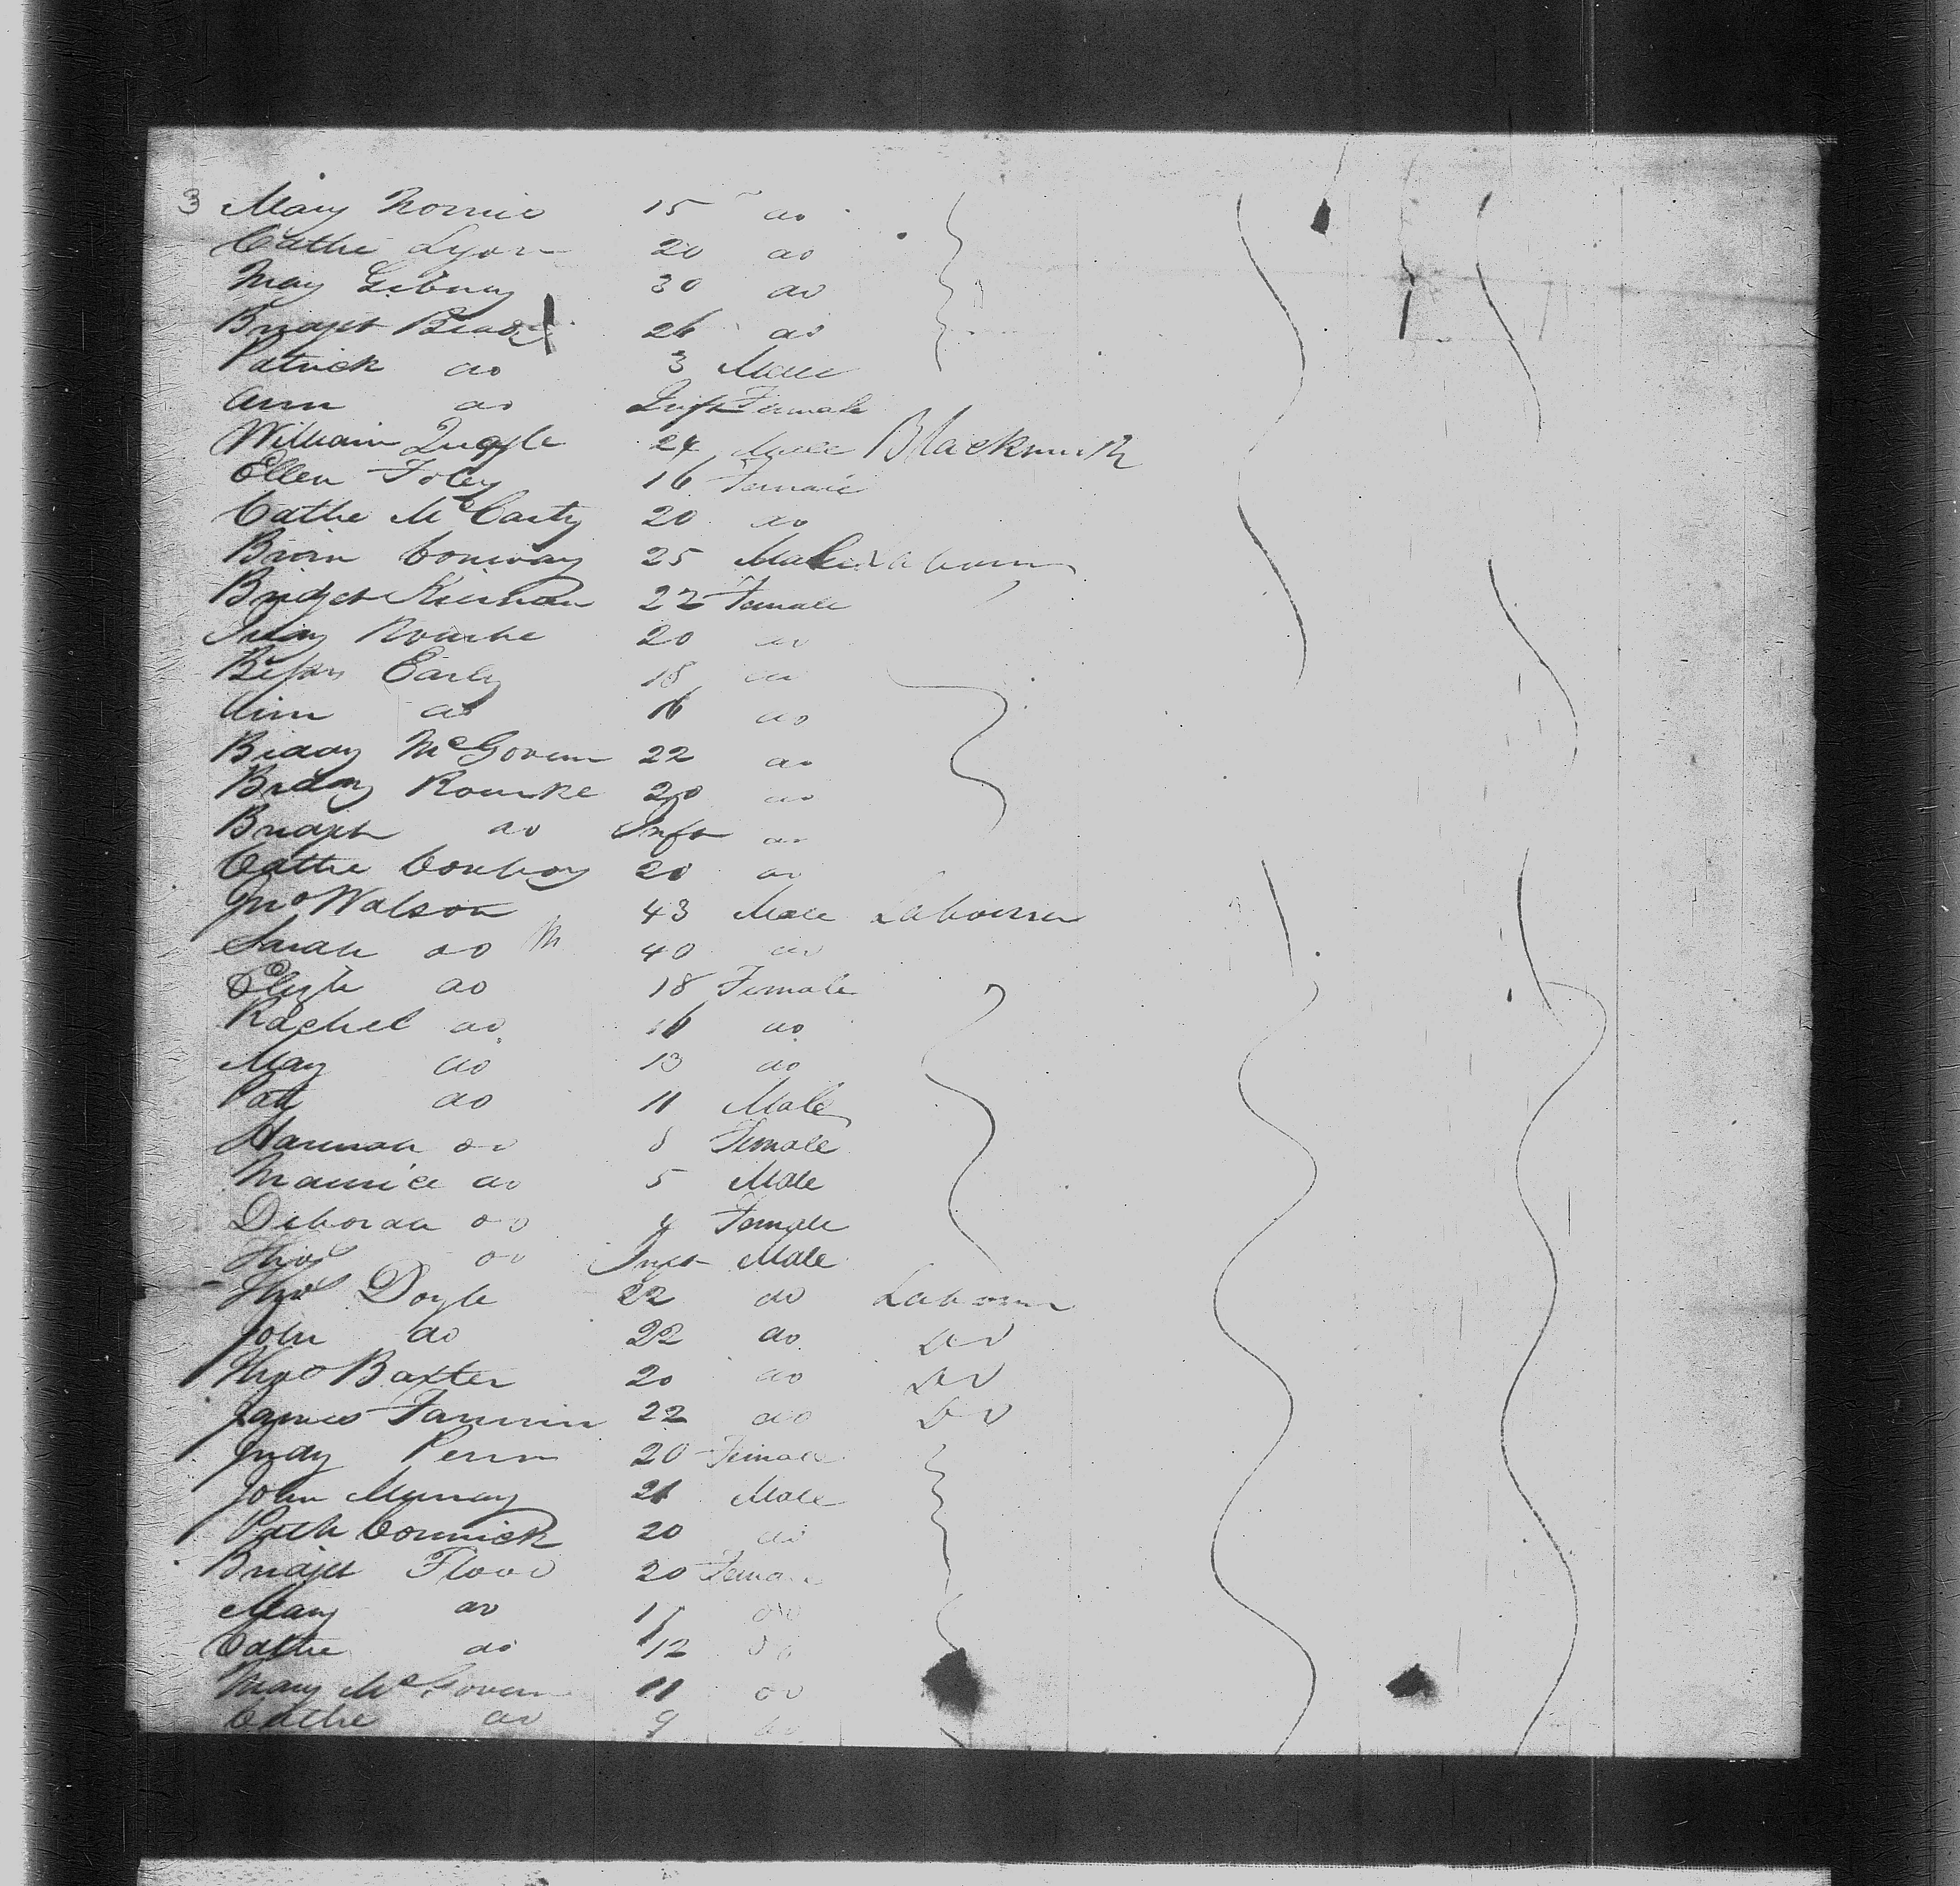 3 Mary 15 do
Cathe Lyon 20 do
Mary Gibney 30 do
Bridget 26 do
Patrick do 3 Male
Ann do Inft Female
William Quigle 24 Male Blacksmith
Ellen Foley 16 Female
Cathe McCarty 20 do
Brien Conway 25 Male Labourer
Bridget Kiernan 22 Female
Rourke 20 do
Betsy Early 18 do
Ann do 16 do
Biddy McGovern 22 do
Biddy Rourke 20 do
Bridget do Inft do
Cathe Conboy 20 do
Jno Watson 43 Male Labourer
Sarah do 40 do
Elizth do 18 Female
Rachel do 16 do
Mary do 13 do
Patk do 11 Male
Hannah do 8 Female
Maurice do 5 Male
Deborah do 4 Female
Thos do Inft Male
Thos Doyle 22 do Labourer
John do 22 do do
Thos Baxter 20 do do
James Fannin 22 do do
Judy 20 Female
John Murray 21 Male
Patk Cormick 20 do
Bridget Flood 20 Female
Mary do do
Cathe do 12 do
Mary McGovern 11 do
Cathe do 9 do